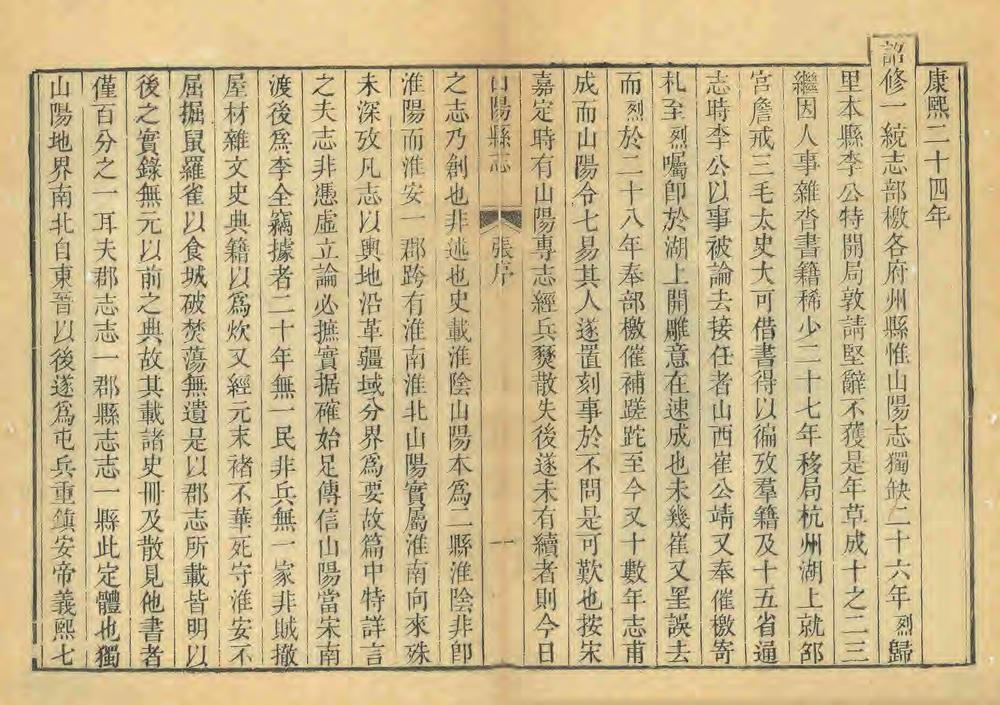 康熙二十四年
詔修一統志部檄各府州縣惟山陽志獨缺二十六年烈歸
里本縣李公特開局敦請堅辭不獲是年草成十之二三
繼因人事雜沓書籍稀少二十七年移局杭州湖上就郃
宮詹戒三毛太史大可借書得以徧攷羣籍及十五省通
志時李公以事被論去接任者山西崔公靖又奉催檄寄
札至烈囑卽於湖上開雕意在速成也未幾崔又罣誤去
而烈於二十八年奉部檄催補蹉跎至今又十數年志甫
成而山陽令七易其人遂置刻事於不問是可歎也按宋
嘉定時有山陽專志經兵燹散失後遂未有續者則今日
山陽縣志 張序 一
之志乃創也非述也史載淮陰山陽本爲二縣淮陰非卽
淮陽而淮安一郡跨有淮南淮北山陽實屬淮南向來殊
未深攷凡志以輿地沿革疆域分界爲要故篇中特詳言
之夫志非憑虛立論必摭實据確始足傳信山陽當宋南
渡後爲李全竊據者二十年無一民非兵無一家非賊撤
屋材雜文史典籍以爲炊又經元末褚不華死守淮安不
屈掘鼠羅雀以食城破焚蕩無遺是以郡志所載皆明以
後之實錄無元以前之典故其載諸史冊及散見他書者
僅百分之一耳夫郡志志一郡縣志志一縣此定體也獨
山陽地界南北自東晉以後遂爲屯兵重鎮安帝義熙七